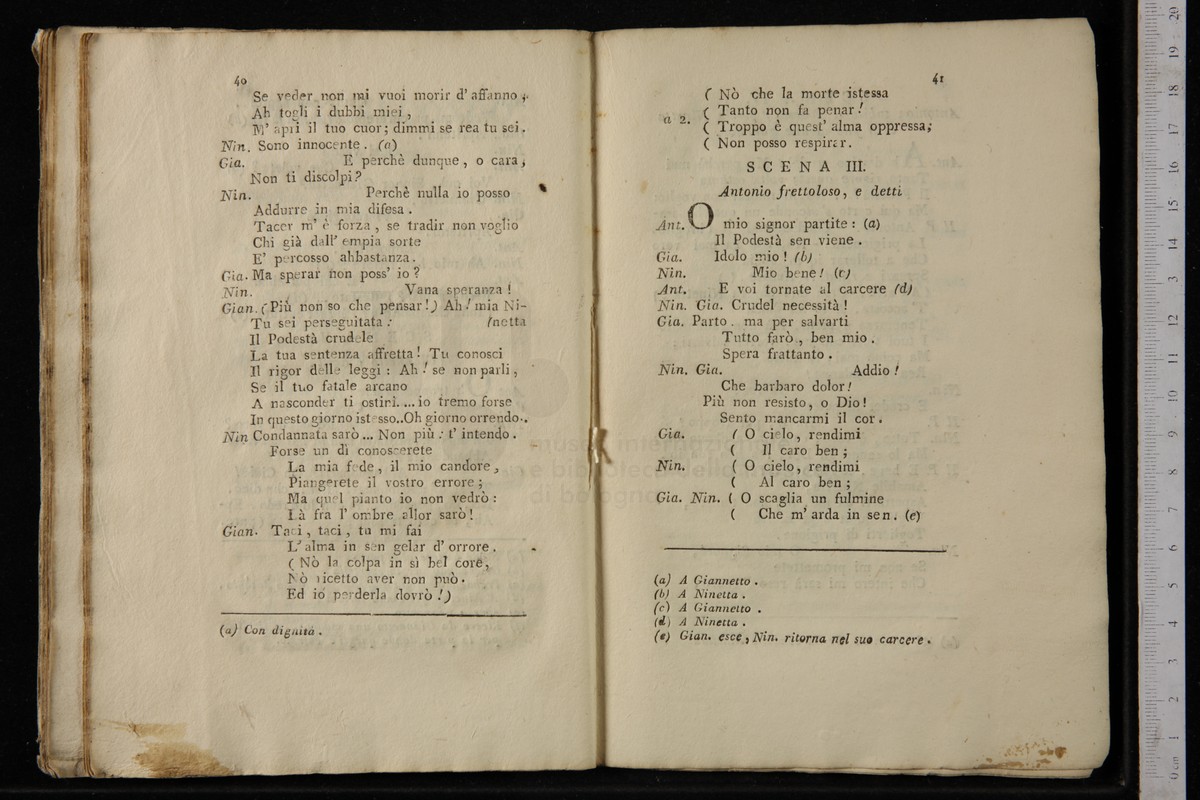 40
Se veder non mi vuoi morir d' affanno ;
Ah togli i dubbi miei ,
M' apri il tuo cuor; dimmi se rea tu sei.
Nin. Sono innocente . (a)
Gia. E perchè dunque , o cara,
Non ti discolpi?
Nin. Perchè nulla io posso
Addurre in mia difesa .
Tacer m' è forza , se tradir non voglio
Chi già dall' empia sorte
E' percosso abbastanza .
Gia. Ma sperar non poss' io ?
Nin. Vana speranza !
Gian. (Più non so che pensar!) Ah! mia Ni-
Tu sei perseguitata : (netta
Il Podestà crudele
La tua sentenza affretta! Tu conosci
Il rigor delle leggi : Ah! se non parli ,
Se il tuo fatale arcano
A nasconder ti ostini.... io tremo forse
In questo giorno istesso..Oh giorno orrendo..
Nin Condannata sarò ... Non più : t' intendo .
Forse un dì conoscerete
La mia fede , il mio candore ,
Piangerete il vostro errore ;
Ma quel pianto io non vedrò :
Là fra l' ombre allor sarò!
Gian. Taci , taci , tu mi fai
L' alma in sen gelar d' orrore .
( Nò la colpa in sì bel core ,
Nò ricetto aver non può .
Ed io perderla dovrò !)
(a) Con dignità .
41
( Nò che la morte istessa
( Tanto non fa penar !
a 2.
( Troppo è quest' alma oppressa;
( Non posso respirar.
SCENA III.
Antonio frettoloso, e detti
Ant. O mio signor partite : (a)
Il Podestà sen viene .
Gia. Idolo mio ! (b)
Nin. Mio bene! (c)
Ant. E voi tornate al carcere (d)
Nin. Gia. Crudel necessità !
Gia. Parto . ma per salvarti
Tutto farò , ben mio .
Spera frattanto .
Nin. Gia. Addio !
Che barbaro dolor!
Più non resisto, o Dio!
Sento mancarmi il cor .
Gia. ( O cielo, rendimi
( Il caro ben ;
Nin. ( O cielo, rendimi
( Al caro ben ;
Gia. Nin. ( O scaglia un fulmine
( Che m' arda in sen. (e)
(a) A Giannetto .
(b) A Ninetta .
(c) A Giannetto .
(d) A Ninetta .
(e) Gian. esce, Nin. ritorna nel suo carcere .
0 cm 1 2 3 4 5 6 7 8 9 10 11 12 13 14 15 16 17 18 19 20